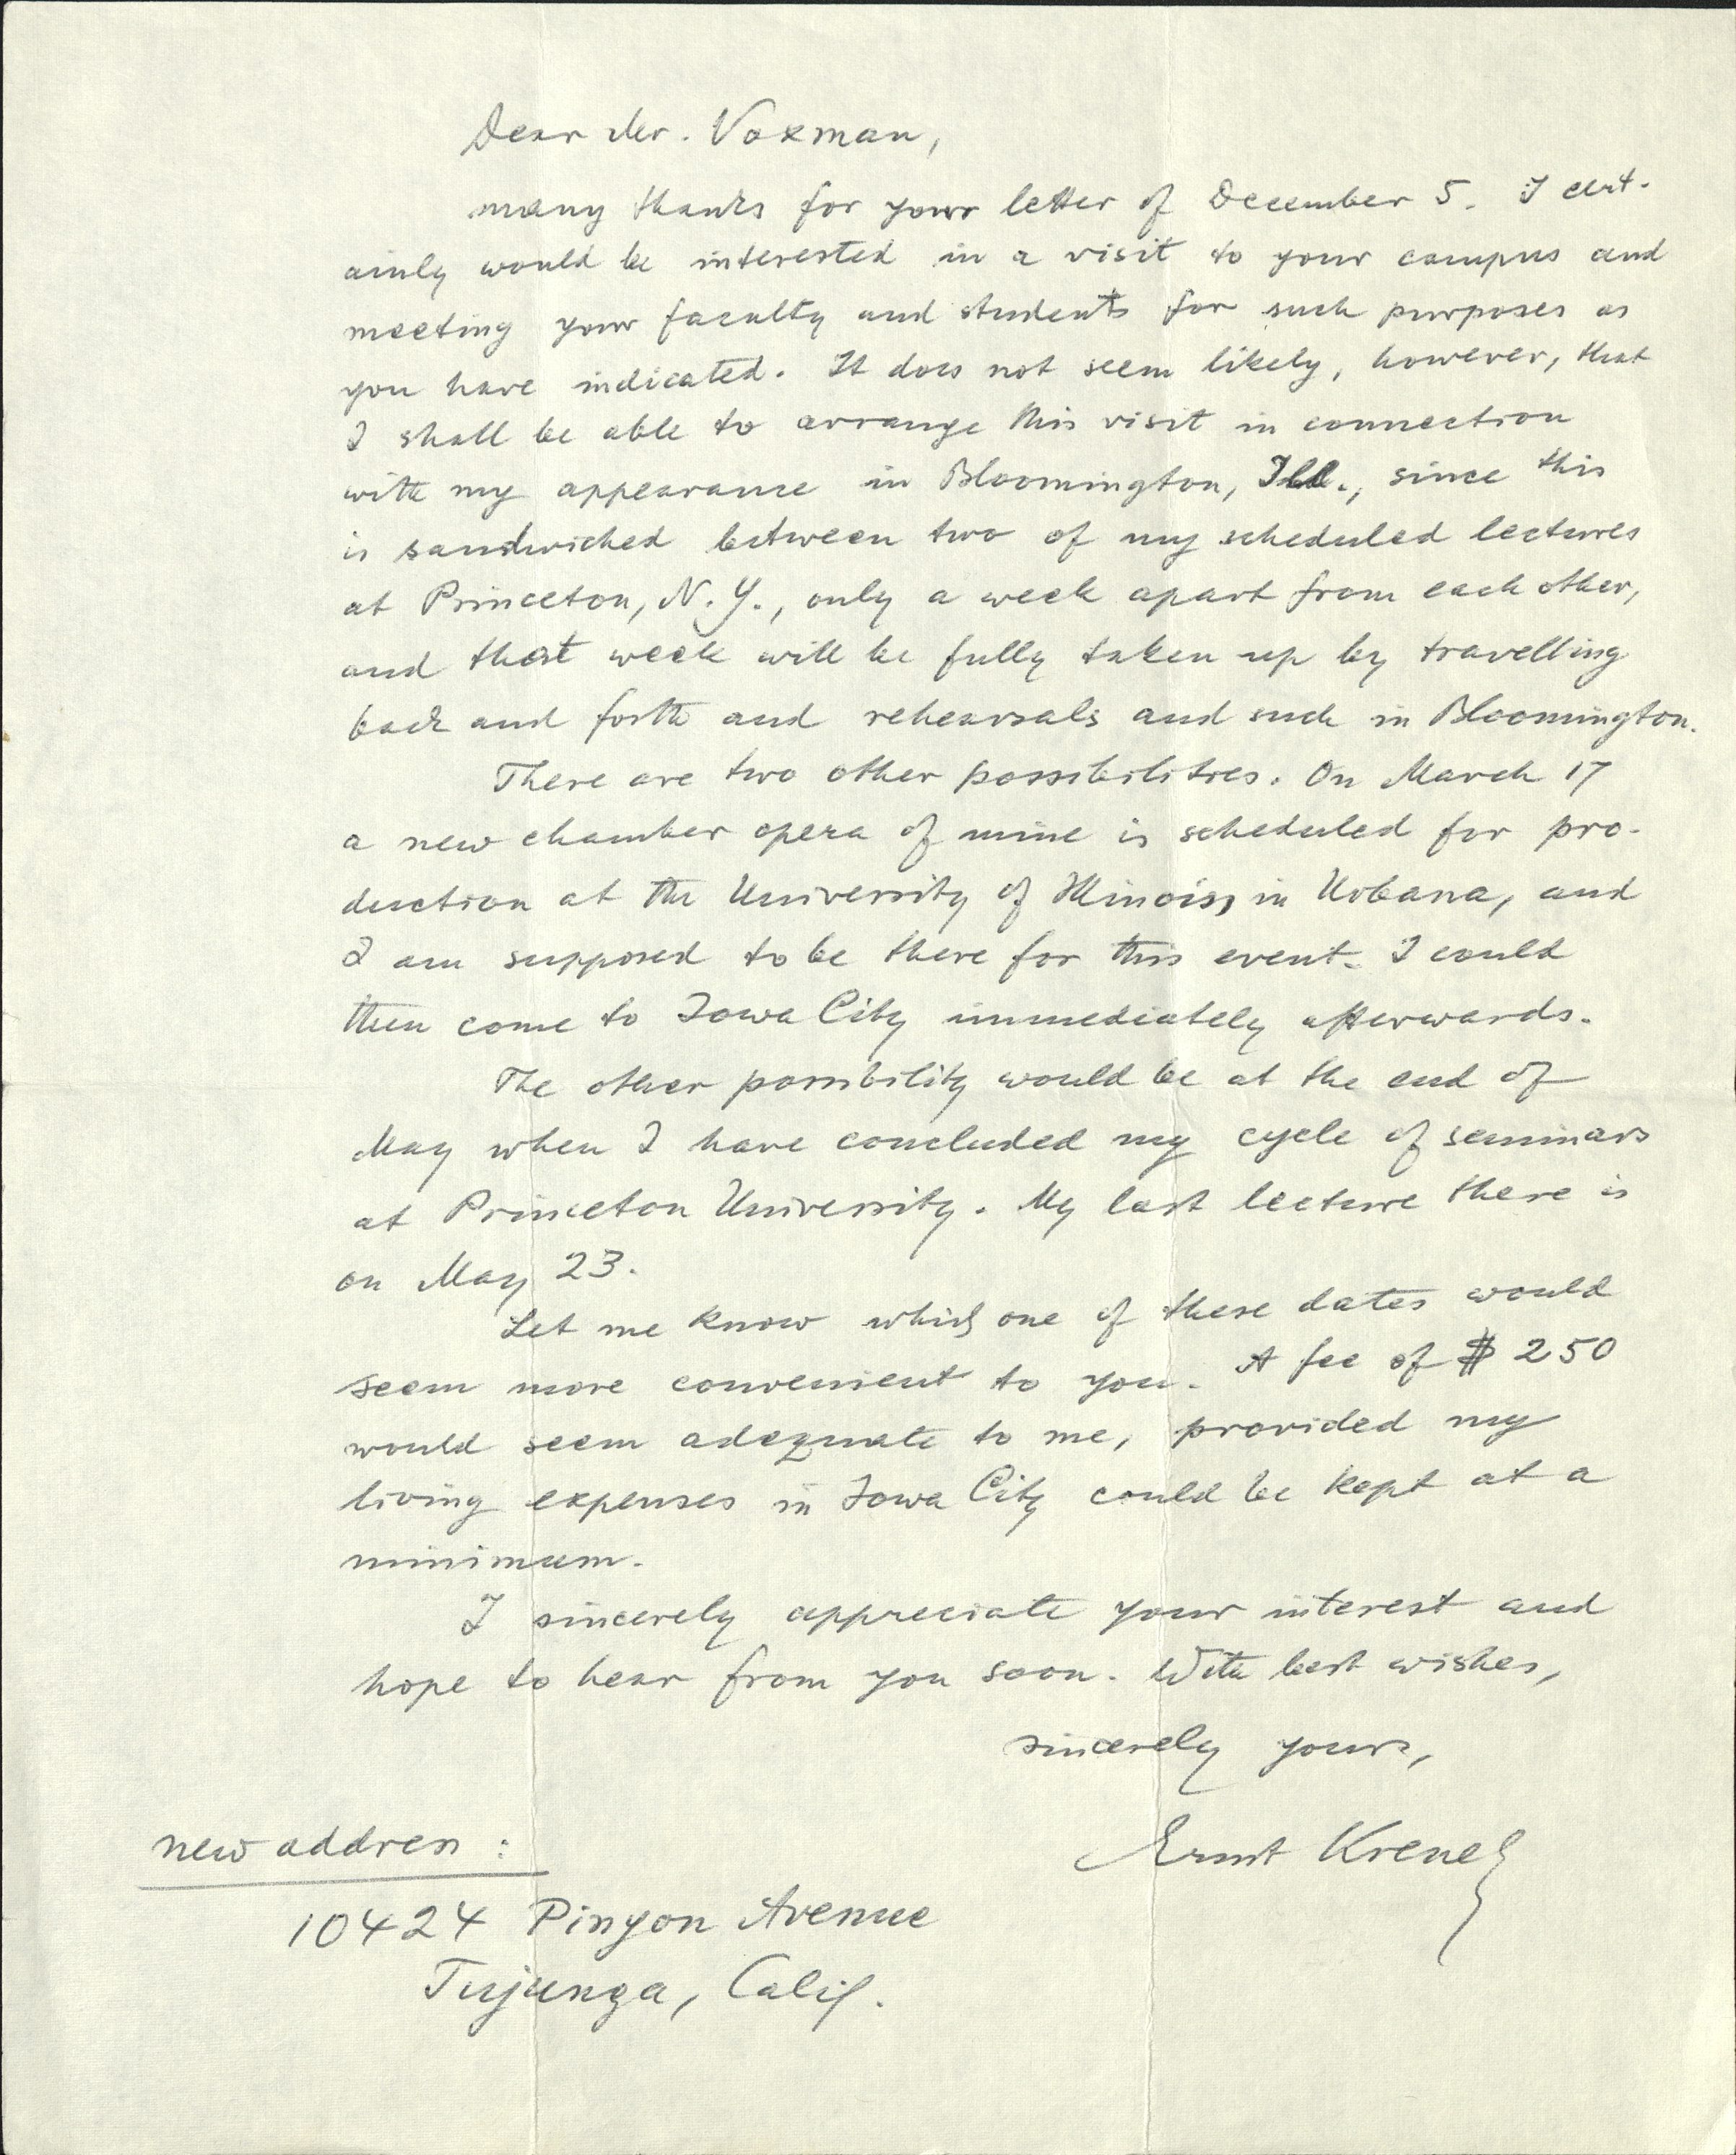 Dear Mr. Voxman,
many thanks for your letter of December 5. I cert-
ainly would be interested in a visit to your campus and
meeting your faculty and students for such purposes as
you have indicated. It does not seem likely, however, that
I shall be able to arrange this visit in connection
with my appearance in Bloomington, Ill., since this
is sandwiched between two of my scheduled lectures
at Princeton, N.Y., only a week apart from each other,
and that week will be fully taken up by travelling
back and forth and rehearsals and such in Bloomington.
There are two other possibilities. On March 17
a new chamber opera of mine is scheduled for pro-
duction at the University of Illinois, in Urbana, and
I am supposed to be there for this event. I could
then come to Iowa City immediately afterwards.
The other possibility would be at the end of
May when I have concluded my cycle of seminars
at Princeton University. My last lecture there is
on May 23.
Let me know which one of these dates would
seem more convenient to you. A fee of $ 250
would seem adequate to me, provided my
living expenses in Iowa City could be kept at a
minimum.
I sincerely appreciate your interest and
hope to hear from you soon. With best wishes,
sincerely yours,
Ernst Krenek
new address:
10424 Pinyon Avenue
Tujunga, Calif.